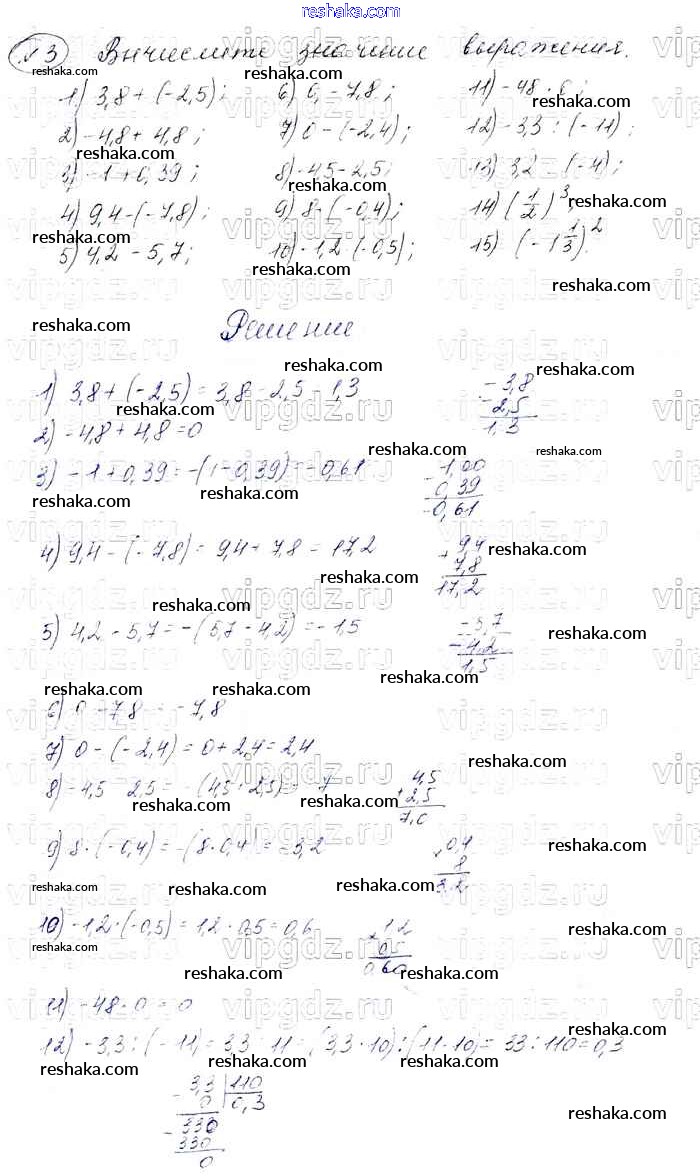 reshaka.com
№3 Вычислите значение выражения.
1) 3,8 + (-2,5); 6) 0 - 7,8; 11) -48 · 0;
2) -4,8 + 4,8; 7) 0 - (-2,4); 12) -3,3 : (-11);
3) -1 + 0,39; 8) -4,5 - 2,5; 13) 3,2 (-4);
4) 9,4 - (-7,8); 9) 8 · (-0,4); 14) (1/2)³;
5) 4,2 - 5,7; 10) -1,2 · (-0,5); 15) (-1 1/3)².
Решение
1) 3,8 + (-2,5) = 3,8 - 2,5 = 1,3
- 3,8
2,5
1,3
2) -4,8 + 4,8 = 0
3) -1 + 0,39 = -(1 - 0,39) = -0,61
- 1,00
0,39
0,61
4) 9,4 - (-7,8) = 9,4 + 7,8 = 17,2
+ 9,4
7,8
17,2
5) 4,2 - 5,7 = -(5,7 - 4,2) = -1,5
- 5,7
4,2
1,5
6) 0 - 7,8 = -7,8
7) 0 - (-2,4) = 0 + 2,4 = 2,4
8) -4,5 - 2,5 = -(4,5 + 2,5) = -7
+ 4,5
2,5
7,0
9) 8 · (-0,4) = -(8 · 0,4) = -3,2
× 0,4
8
3,2
10) -1,2 · (-0,5) = 1,2 · 0,5 = 0,6
× 1,2
0,5
0,60
11) -48 · 0 = 0
12) -3,3 : (-11) = 3,3 : 11 = (3,3 · 10) : (11 · 10) = 33 : 110 = 0,3
- 3,3 | 110
0 | 0,3
- 330
330
0